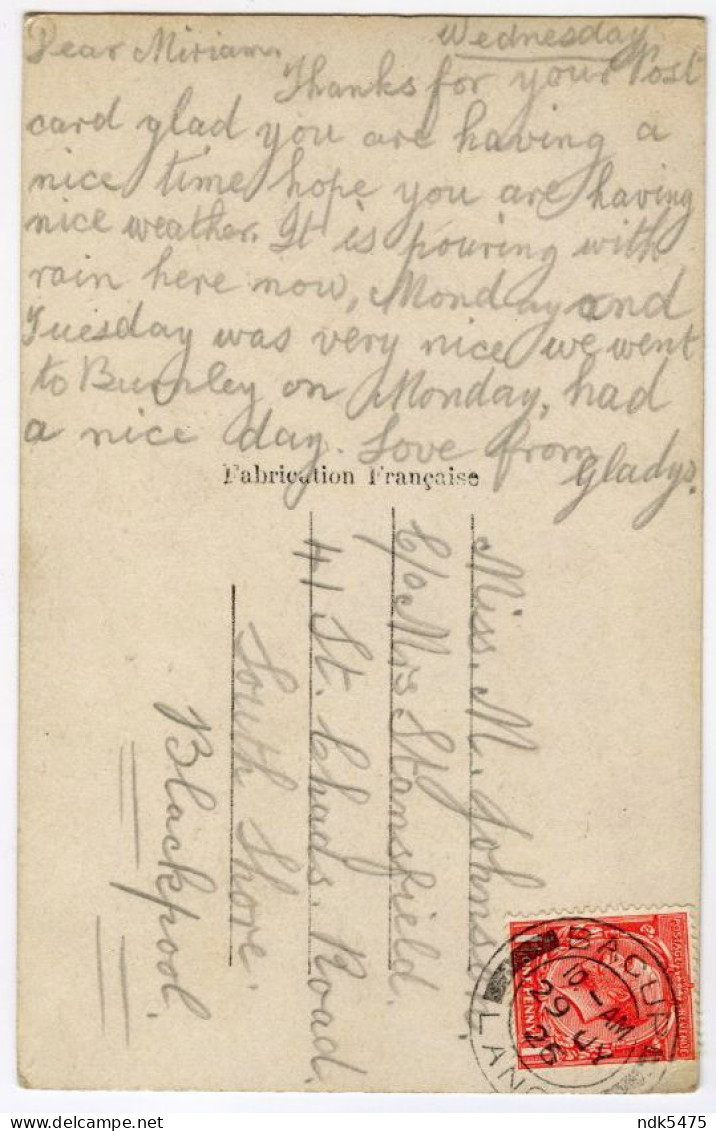 Wednesday
Dear Miriam.
Thanks for your Post
card glad you are having a
nice time hope you are having
nice weather. It is pouring with
rain here now, Monday and
Tuesday was very nice we went
to Burnley on Monday, had
a nice day. Love from
Gladys.
Fabrication Française
Miss. M. Johns
C/o Mrs Stansfield.
41 St. Chads. Road.
South Shore.
Blackpool.
BACUP
10 - AM
29 JY
26
LANC
ONE PENNY
ndk5475